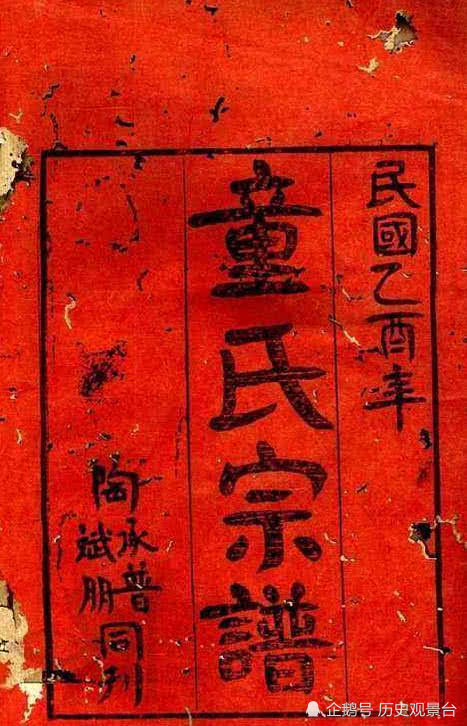 民國乙酉年
童氏宗譜
陶承普
斌朋
同刋
企鹅号 历史观景台